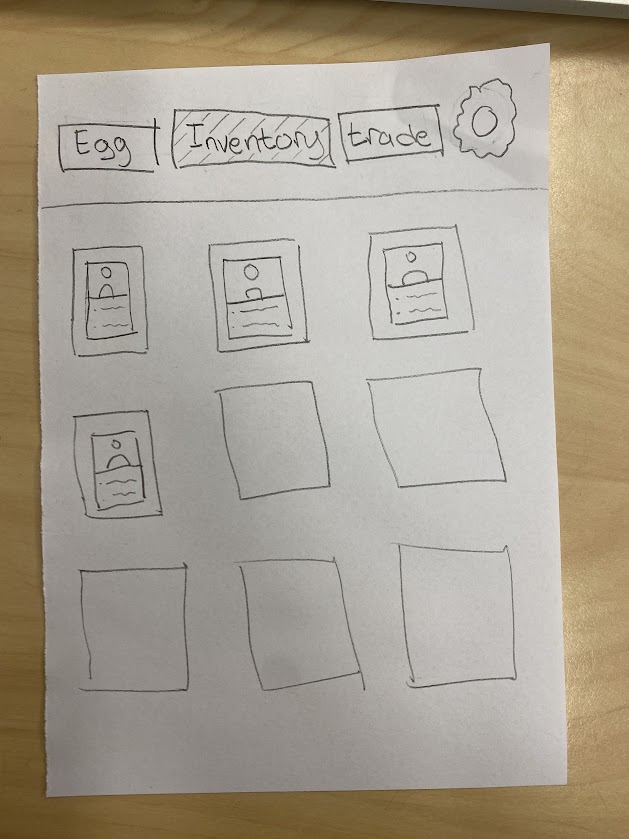 Egg Inventory trade